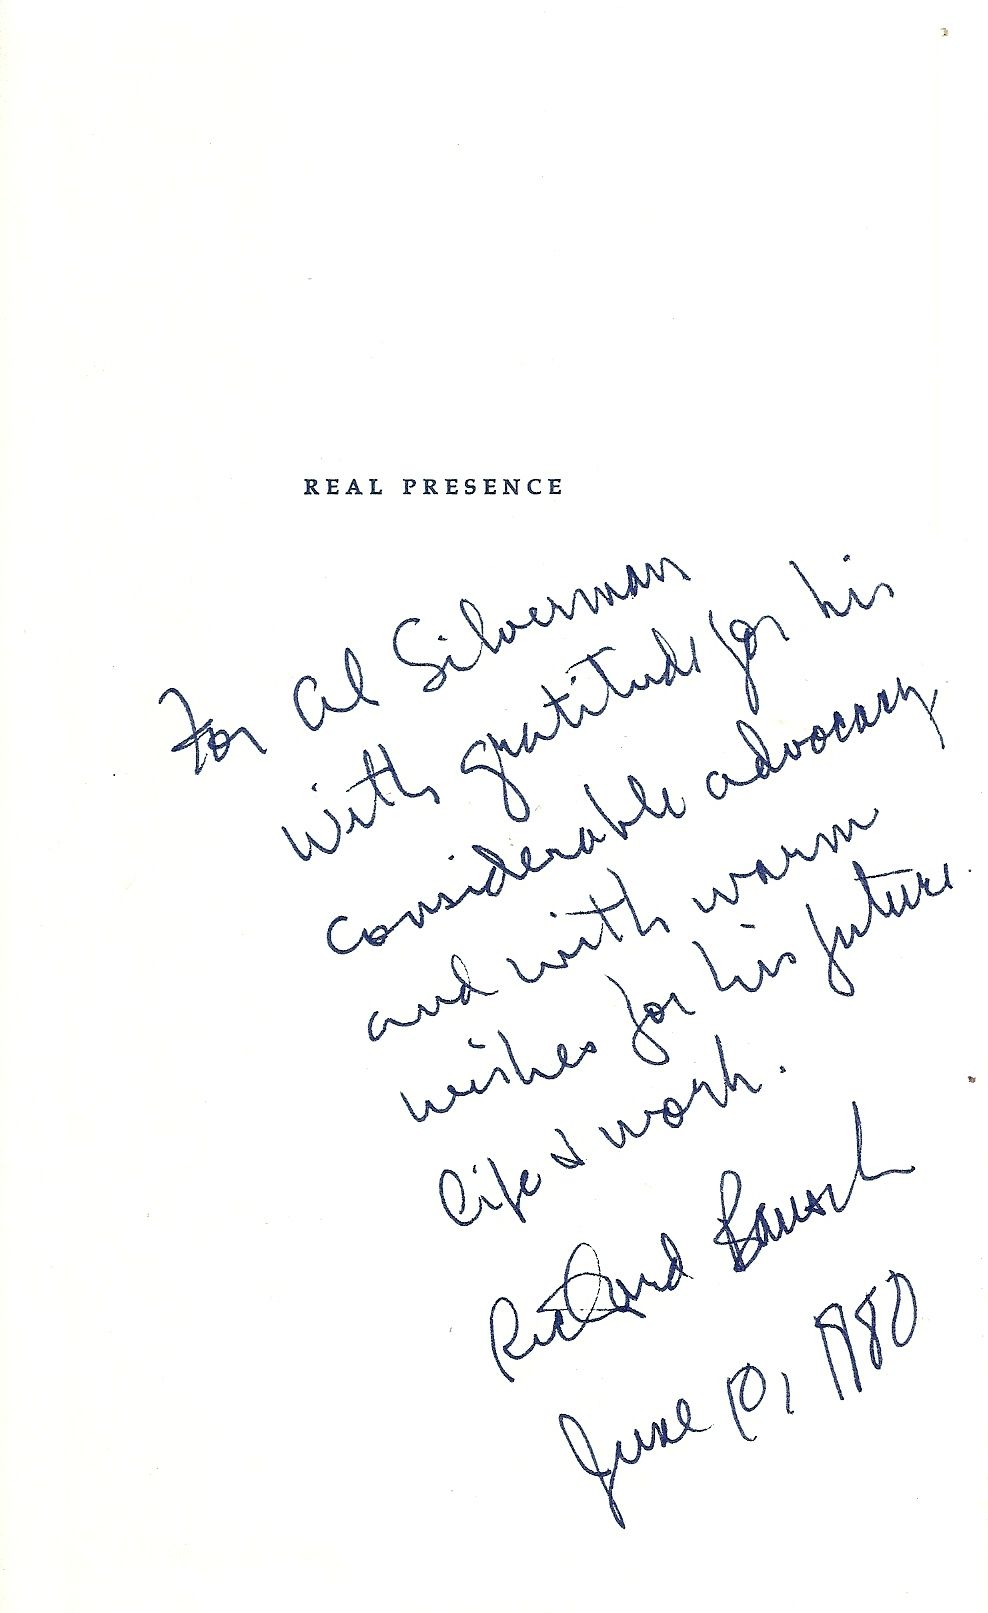 REAL PRESENCE
For Al Silverman
with gratitude for his
considerable advocacy
and with warm
wishes for his future
life & work.
Richard Bausch
June 10, 1980